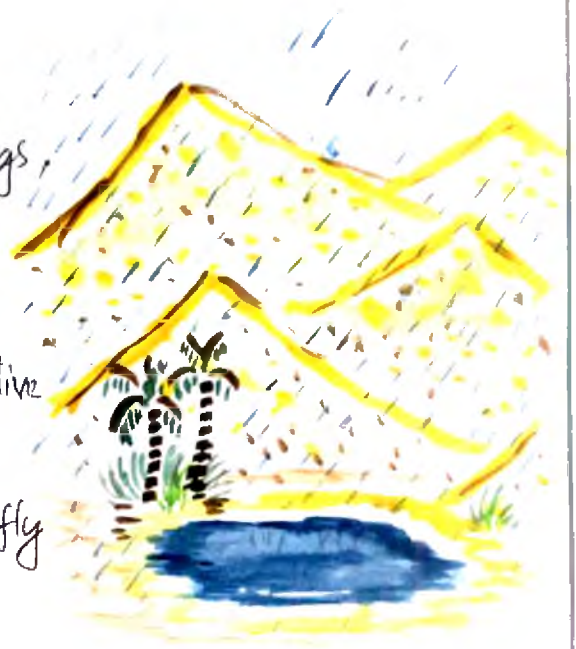 gs,
tive
fly